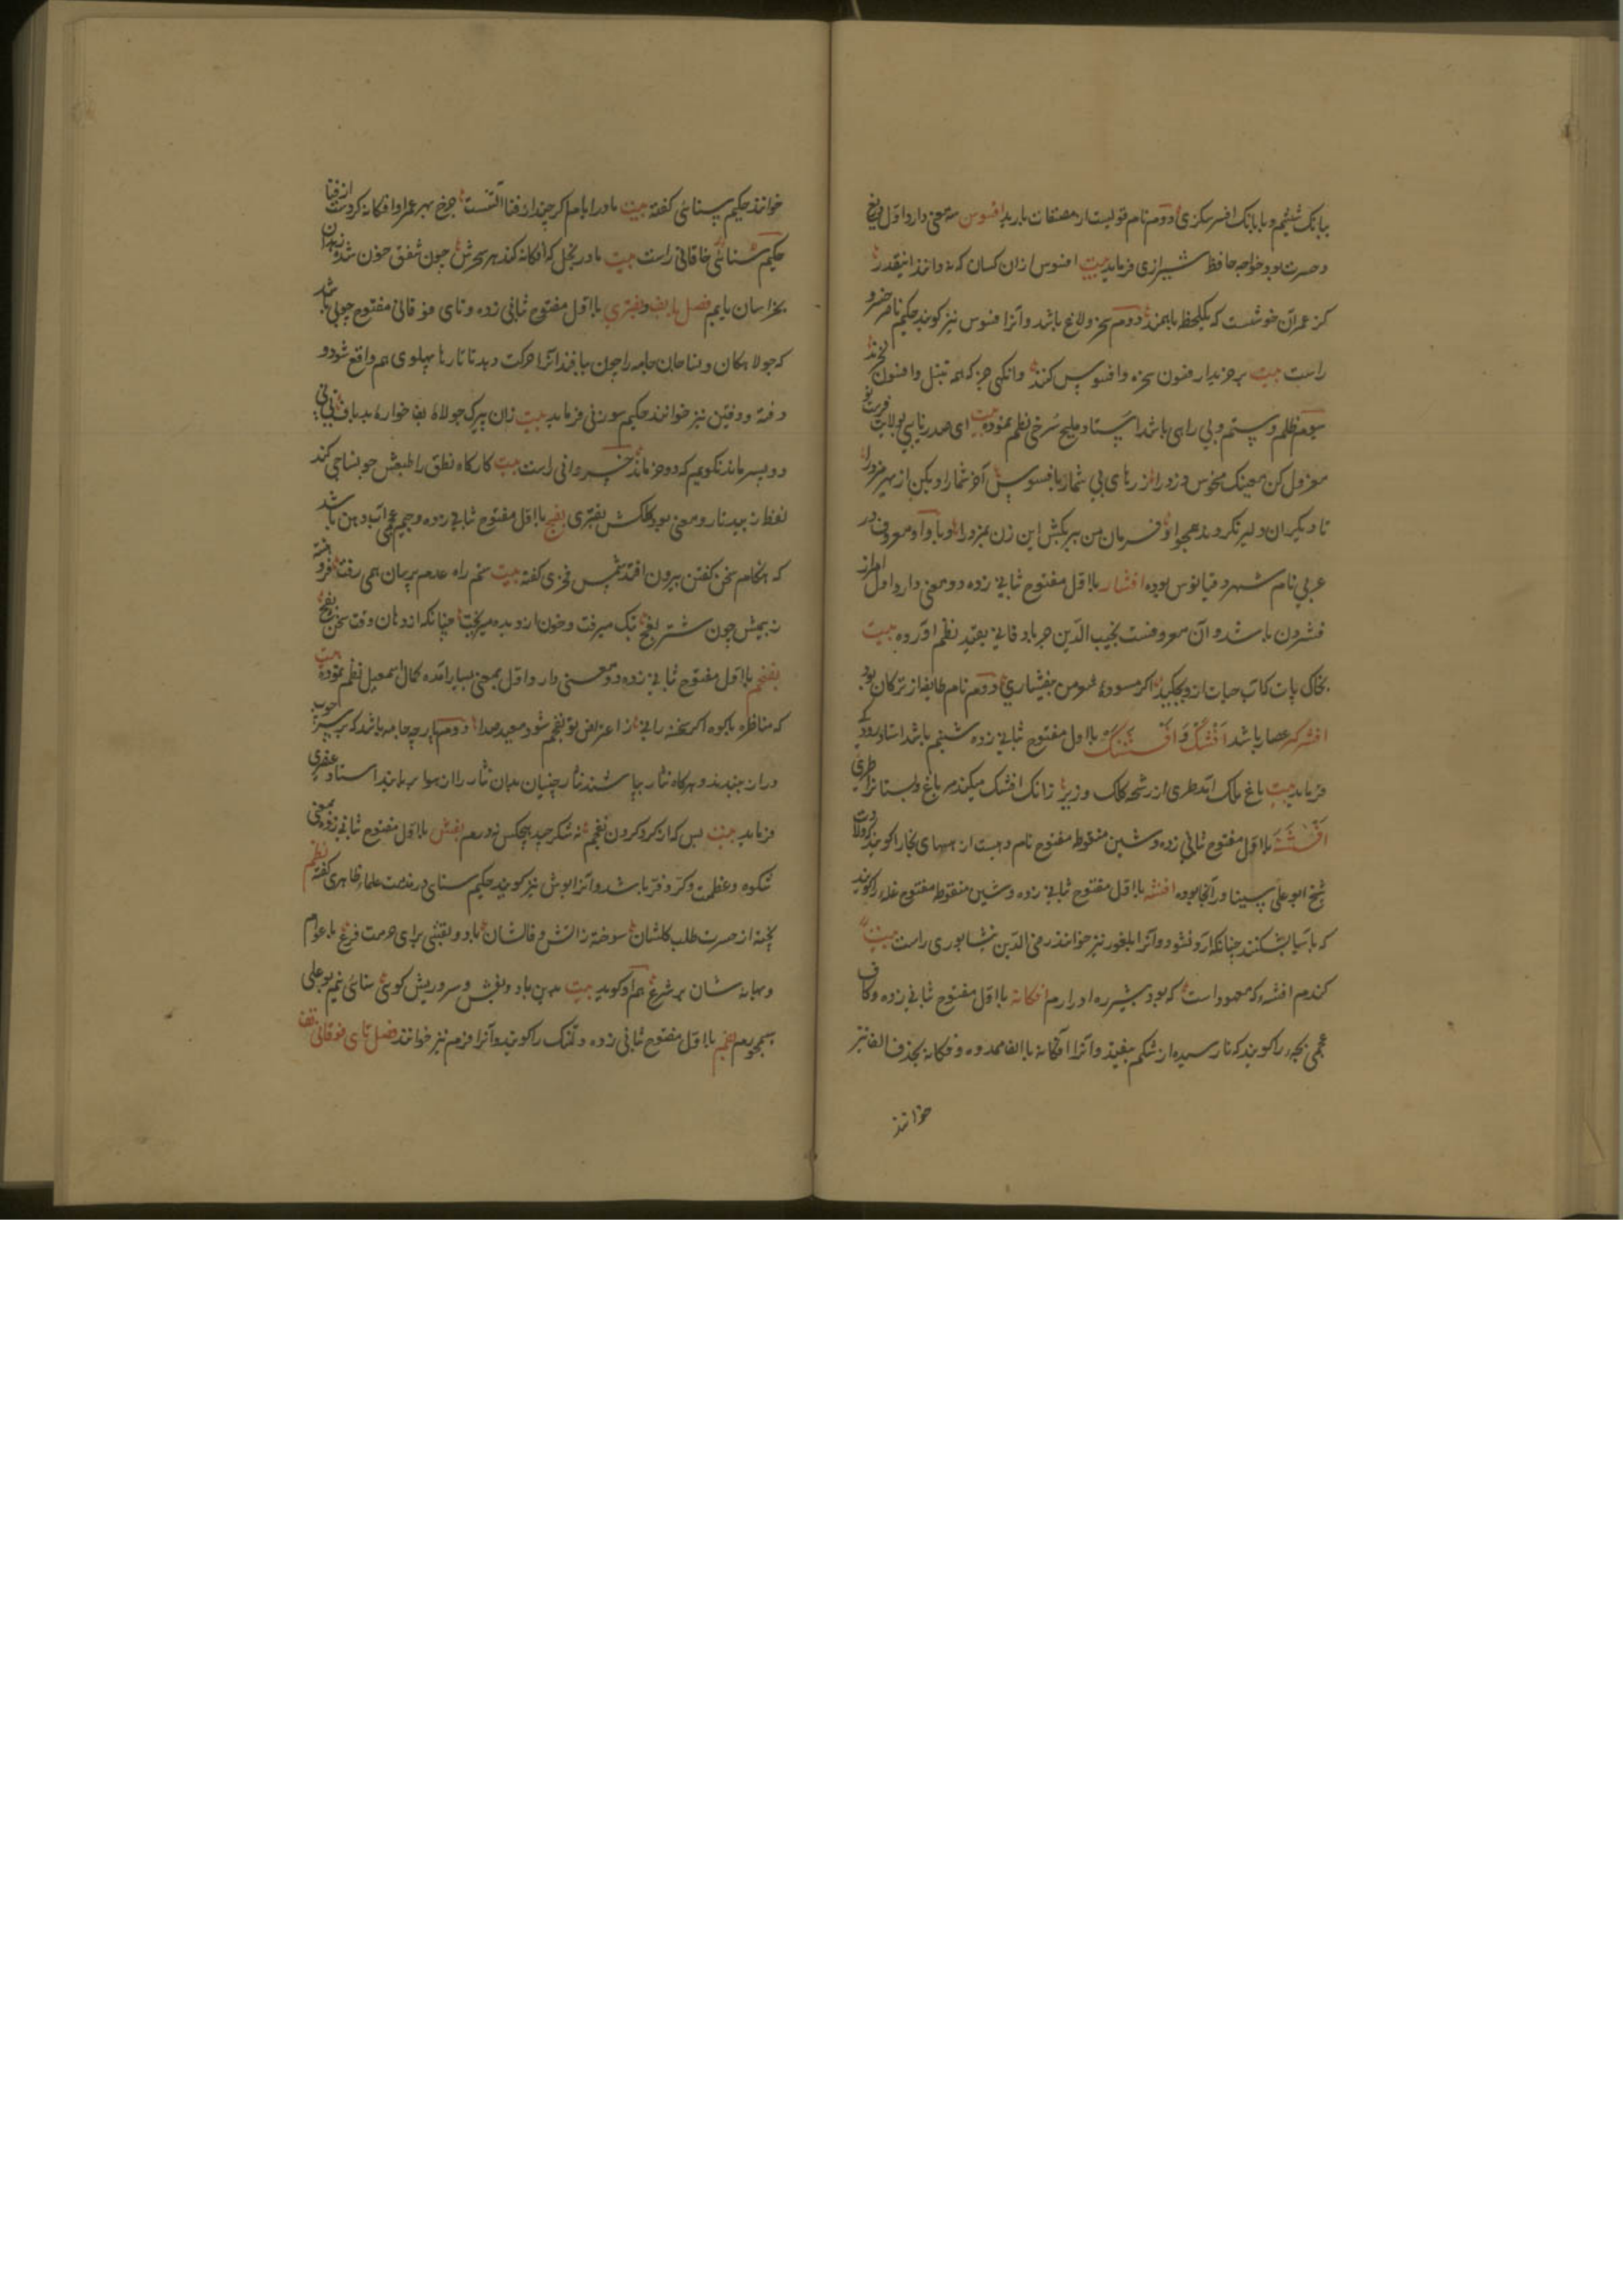 ببانک ششم و بابانک افسر سکزی دوم نام قولیست از مصنفات باربد افسوس سه معنی دارد اول دریغ
و حسرت بود خواجه حافظ شیرازی فرماید بیت افسوس از ان کسان که ندانند اینقدر
کز عمر آن خوشست که یکلحظ با همند دوم سخر و لاغ باشد و آنرا فسوس نیز کویند حکیم ناصر خسرو
راست بیت بر خریدار فسون سخره و افسوس کند وانکهی جز که همه تنبل و افسون نخرند
سوم ظلم و ستم و بی راهی باشد استاد ملیح سرخی نظم نموده بیت ای صدر نایبی بولایت فرست
معزول کن معینک منحوس دزد را زرهای بی شمار بافسوس
تا دیکران دلیر نکردند همچو او فرمان من ببر بکش این زن بمزد را و با واو معروف در
عربی نام شهر دقیانوس بوده افشار با اول مفتوح ثانی زده دو معنی دارد اول
فشردن باشد و آن معروفست نجیب الدین جربادقانی بقید نظم اورده بیت
بخاک پات که آب حیات ازو بچکد اکر مسوده شعر من بیفشاری دوم نام طایفه از ترکان بود
افشره کر عصار باشد افشک و افشنک با اول مفتوح ثانی زده شبنم باشد استاد رودکی
فرماید بیت باغ ملک آمد طری از رشحه کلک وزیر زانک افشک میکند مر باغ و بستانرا طری
افشنه با اول مفتوح ثانی زده و شین منقوط مفتوح نام دهیست از دههای بخارا کویند که ولادت
شیخ ابو علی سینا در آنجا بوده افشه با اول مفتوح ثانی زده و شین منقوطه مفتوح غله را کویند
که باسیا بشکنند چنانکه آرد نشود و آنرا بلغور نیز خوانند رضی الدین نیشابوری راست بیت
کندم افشه که معهود است که بود افکانه با اول مفتوح ثانی زده و کاف
عجمی بچه را کویند که نارسیده از شکم بیفتد و آنرا آفکانه با الف ممدوده و فکانه بحذف الف نیز
خوانند
خوانند حکیم سنائی کفته بیت مادر ایام کر چه از فنا آبستنست چرخ بهر عمر او افکانه کردست از فنا
حکیم خاقانی راست بیت مادر بخل که افکانه کند هر سحرش چون شفق خون شده
بخراسان یابم فصل با بف و بفتری با اول مفتوح ثانی زده و تای فوقانی مفتوح چوبی باشد
که جولاهکان و نساجان جامه را چون ببافند آنرا حرکت دهند تا تارها پهلوی هم واقع شود و
دفته و دفتین نیز خوانند حکیم سوزنی فرماید بیت زان پیرک جولاه
دو بسر ماند نکویم که دو خر ماند خسروانی راست بیت کارکاه نطق را طبعش چو نساجی کند
لفظ زیبد تار و معنی پود کلکش بفتری بفج با اول مفتوح ثانی زده و جیم عجمی آب دهن باشد
که هنکام سخن کفتن بیرون افتد شمس فخری کفته بیت خصم راه عدم
ز بیمش چون شتر بفج تک میرفت و خون از دیده میریخت چنانکه از دهان وقت سخن بفج
بفخم با اول مفتوح ثانی زده دو معنی دارد اول بمعنی بسیار آمده کمال اسمعیل نظم نموده بیت
که مناظره با کوه اکر سخن رانی ز اعتراض تو بفخم شود صدا دوم پارچه جامه باشد که بر سر چوب
دراز بندند و هرکاه نثار پاشند نثار چینان بدان نثار را از هوا بربایند استاد عنصری
فرماید بیت بس که از کرد کردن بفخم نه شکر چید هیچکس نه درم بفش با اول مفتوح ثانی زده بمعنی
شکوه و عظمت و کر و فر باشد و آنرا بوش نیز کویند حکیم سنائی در مذمت علماء ظاهری کفته نظم
پخته از حسرت طلب سوخته ز آتش باد و بفشی برای حرمت فرع با عوام
و بهانه شان بر شرع هم او کوید بیت بدین باد و بفش و سر و ریش کوئی سنائی نیم بو علی
سیمجورم بفم با اول مفتوح ثانی زده دلتنک را کویند و آنرا فزم نیز خوانند فصل تای فوقانی تف